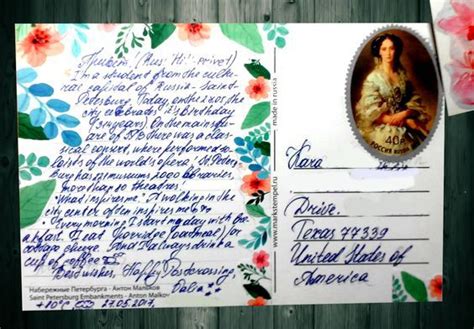 Привет, (Rus: "Hi"-privet)
I'm a student from the cultural
capital of Russia - Saint-
Petersburg. Today, on the 27.05, the
city celebrates its birthday.
On the main square
of SPb there was a classical
concert, where performed soloists
of the world's opera. St. Peters
burg has museums, 2000 libraries,
more than 80 theatres!
What inspires me? A walking in the
city center often inspires me
Every morning I starting day with breakfast.
I eat (porridge, oatmeal) or
cottage cheese. And I always drink a
cup of coffee
Best wishes, Happy Postcrossing,
+10°C 27.05.2017.
Набережные Петербурга - Антон Мальков
Saint Petersburg Embankments - Anton Malkov
www.markstempel.ru
made in russia
РОССИЯ
40
Kara
Drive.
Texas 77339
United States of
America